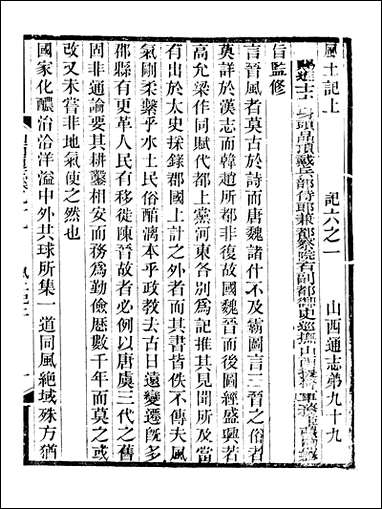 風土記上 記六之一 山西通志第九十九
士身頭品頂戴兵部侍郎兼都察院右副都御史巡撫山西
旨監修
言晉風者莫古於詩而唐魏諸什不及霸圖言三晉之俗者
莫詳於漢志而韓趙所都非復故國魏晉而後圖經盛興若
高允梁作同賦代都上黨河東各別為記推其見聞所及當
有出於太史採錄郡國上計之外者而其書皆佚不傳夫風
氣剛柔繫乎水土民俗醕漓本乎政教去古日遠變遷旣多
郡縣有更革人民有移徙陳晉故者必例以唐虞三代之舊
固非通論要其耕鑿相安而務為勤儉歷數千年而莫之或
改又未嘗非地氣使之然也
國家化醲洽洽洋溢中外共球所集一道同風絕域殊方猶